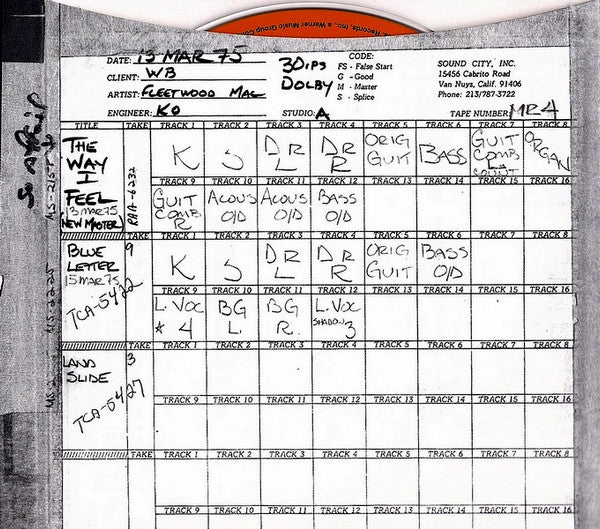 Records, Inc., a Warner Music Group Co
DATE: 13 MAR 75
CLIENT: WB
ARTIST: FLEETWOOD MAC
ENGINEER: KO
30 IPS
DOLBY
STUDIO: A
CODE:
FS - False Start
G - Good
M - Master
S - Splice
SOUND CITY, INC.
15456 Cabrito Road
Van Nuys, Calif. 91406
Phone: 213/787-3722
TAPE NUMBER: MR4
TITLE TAKE TRACK 1 TRACK 2 TRACK 3 TRACK 4 TRACK 5 TRACK 6 TRACK 7 TRACK 8
THE WAY I FEEL
13 MAR 75
(NEW MASTER)
RAA-6232
K S DR L DR R ORIG GUIT BASS GUIT COMB L COUNT ORGAN
TRACK 9 TRACK 10 TRACK 11 TRACK 12 TRACK 13 TRACK 14 TRACK 15 TRACK 16
GUIT COMB R ACOUS O/D ACOUS O/D BASS O/D
TAKE TRACK 1 TRACK 2 TRACK 3 TRACK 4 TRACK 5 TRACK 6 TRACK 7 TRACK 8
BLUE LETTER
15 MAR 75
TCA-5422
9
K S DR L DR R ORIG GUIT BASS O/D
TRACK 9 TRACK 10 TRACK 11 TRACK 12 TRACK 13 TRACK 14 TRACK 15 TRACK 16
L. VOC * 4 BG L BG R L. VOC SHADOW 3
TAKE TRACK 1 TRACK 2 TRACK 3 TRACK 4 TRACK 5 TRACK 6 TRACK 7 TRACK 8
LAND SLIDE
3
TCA-5427
TRACK 9 TRACK 10 TRACK 11 TRACK 12 TRACK 13 TRACK 14 TRACK 15 TRACK 16
TAKE TRACK 1 TRACK 2 TRACK 3 TRACK 4 TRACK 5 TRACK 6 TRACK 7 TRACK 8
TRACK 9 TRACK 10 TRACK 11 TRACK 12 TRACK 13 TRACK 14 TRACK 15 TRACK 16